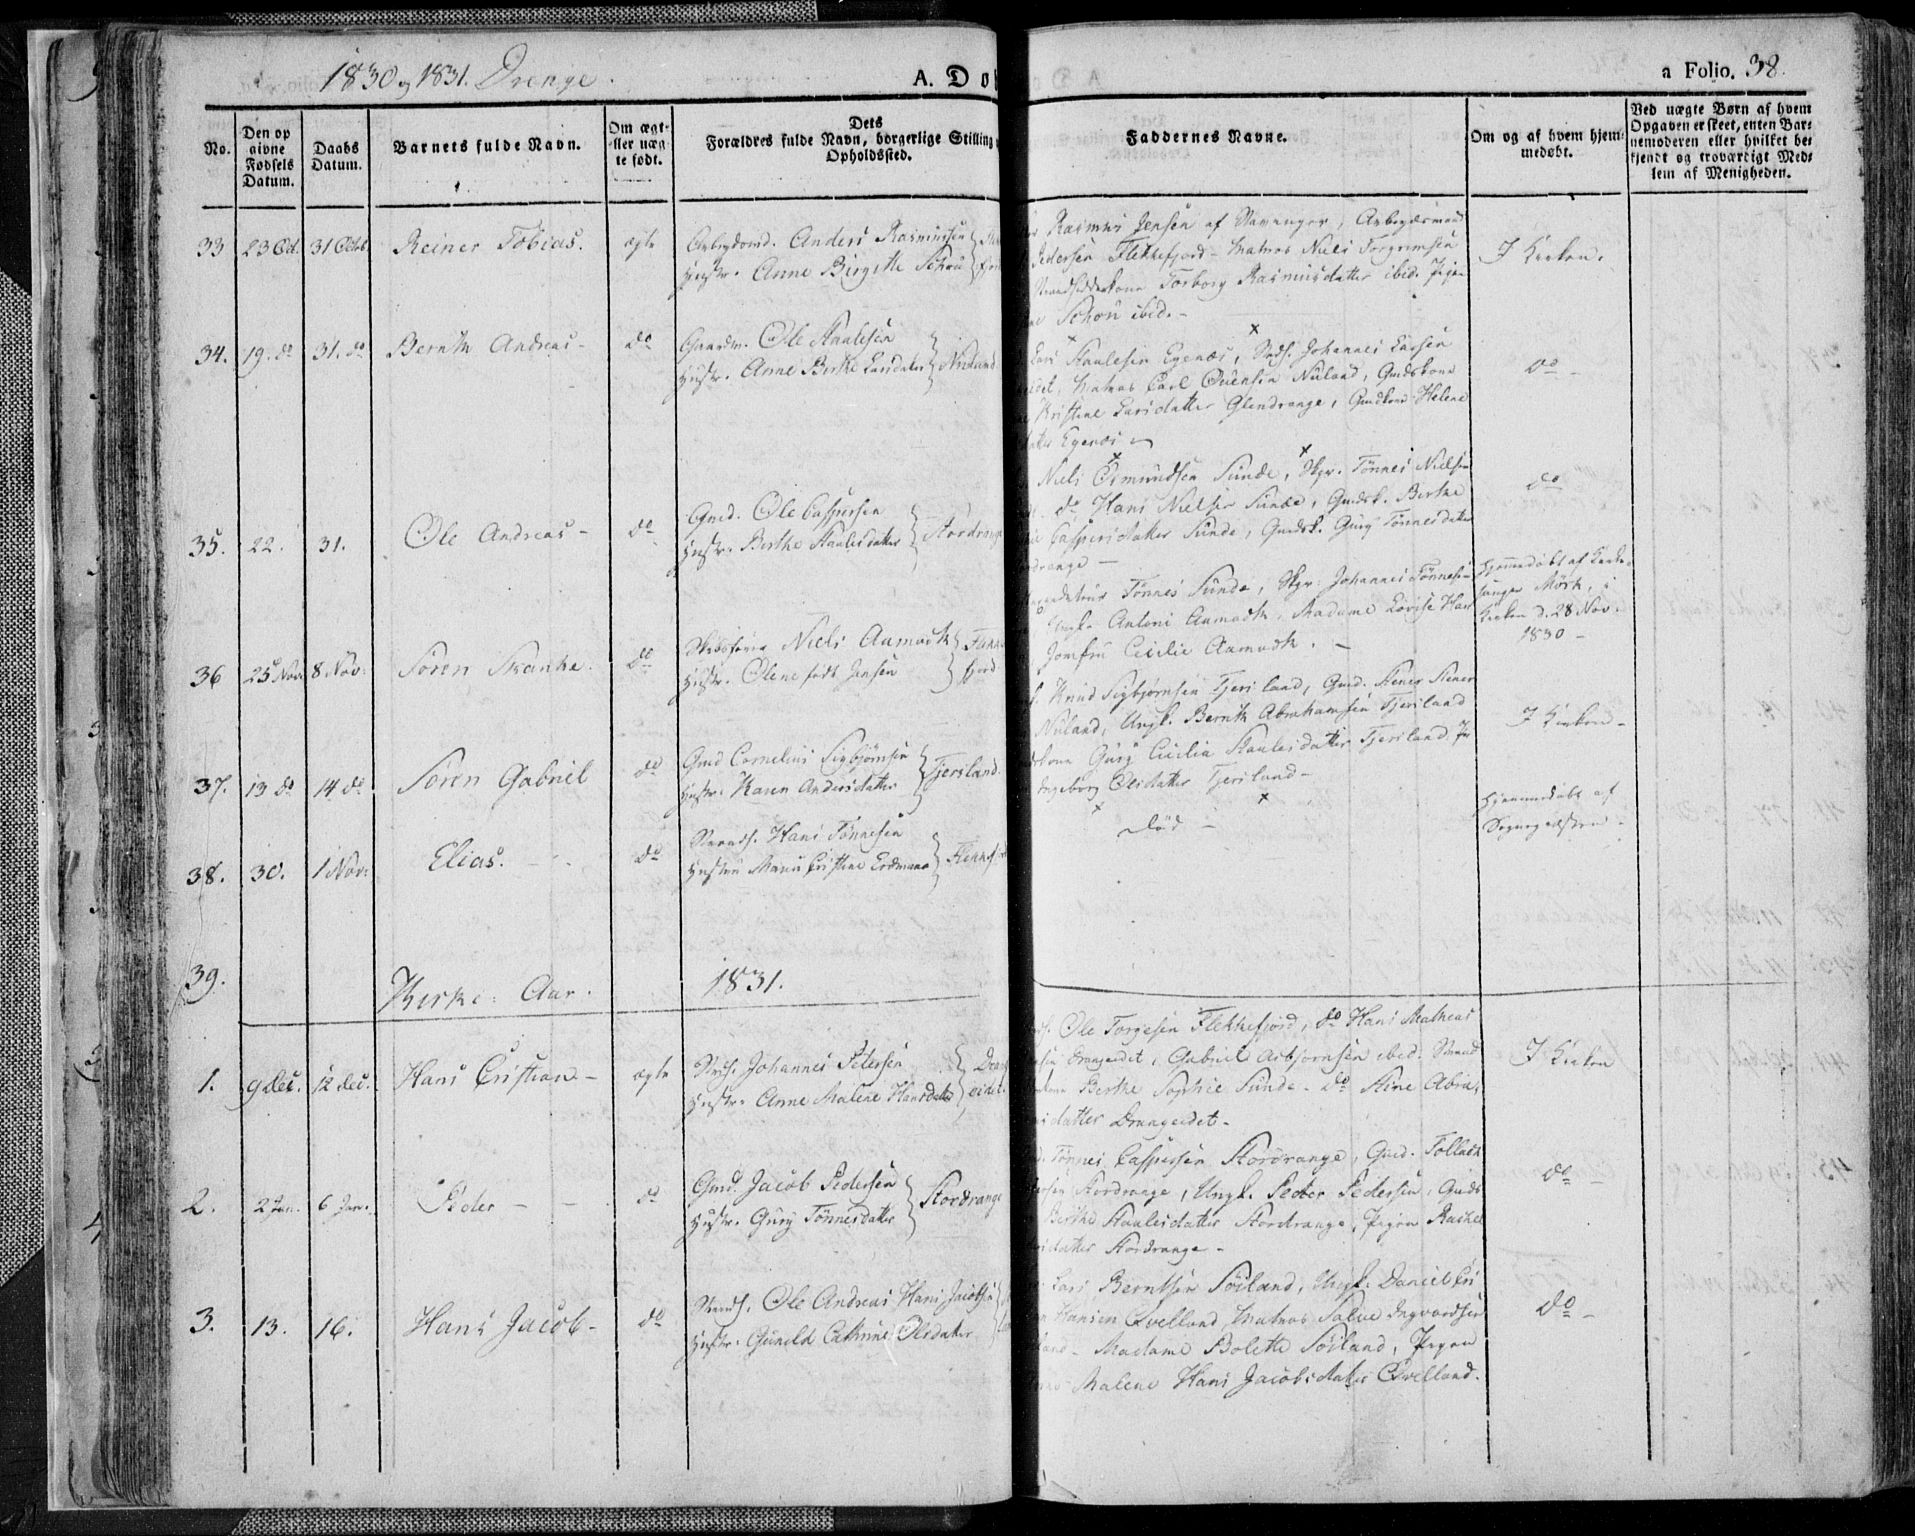 1830 og 1831. Drenge.
A. Do
a Folio. 38.
No.
Den op
givne
Fødsels
Datum.
Daabs
Datum.
Barnets fulde Navn.
Om ægt-
ller uæg-
te født.
Dets
Forældres fulde Navn, borgerlige Stilling
Opholdssted.
Faddernes Navne.
Om og af hvem hjem-
medøbt.
Ved uægte Børn af hvem
Opgaven er skeet, enten Bar-
nemoderen eller hvilket be-
kjendt og troværdigt Med-
lem af Menigheden.
33 23 Oct. 31 Octbr Reiner Tobias. ægte
Arbeydsmd. Anders Rasmussen
Hustr. Anne Birgitte Schou
Rasmus Jensen af Stavanger, Arbeydsmand
Pedersen Flekkefjord - Matros Niels Torgrimsen
Strandsidderkone Torborg Rasmusdatter ibid. Pige
Schou ibid. -
I Kirken.
34. 19. do 31. do Bernth Andreas - do
Gaardm. Ole Staalesen
Hustr. Anne Birthe Larsdatter } Nuland
Lars Staalesen Egenæs, Strds. Johannes Larsen
Matros Carl Quensen Nuland, Gmdskone
Kristine Larsdatter Glendrange, Gmdkone Helene
datter Egenæs
do -
35. 22. 31. Ole Andreas - do
Gmd. Ole Caspersen
Hustr. Berthe Staalesdatter } Stordrange
Niels Osmundsen Sunde, Skpr. Tønnes Nielsen
do Hans Nielsen Sunde, Gmdsk. Berthe
Caspersdatter Sunde, Gmdsk. Gury Tønnesdatter
drange -
do
36 25 Nov. 8 Nov. Søren Skanke. do
Skibsfører Niels Aamodt
Hustr. Olene født Jansen } Flekke
fjord
Tønnes Sunde, Skpr. Johannes Tønnesen
Ungk. Antoni Aamodt, Madame Lovise Han
Jomfru Cecilie Aamodt. -
Hjemmedøbt af Kirke-
sanger Mörk, i
Kirken d. 28 Nov.
1830 -
37. 13 do 14 do Søren Gabriel do
Gmd Cornelius Sigbjørnsen
Hustr. Karen Andersdatter } Tjersland.
Knud Sigbjørnsen Tjersland, Gmd. Stener Stener
Nuland, Ungk. Bernth Abrahamsen Tjersland
kone Gury Cecilia Staalesdatter Tjersland. Pi
Ingeborg Olsdatter Tjersland -
I Kirken -
38. 30. 1 Nov. Elias. do
Strands. Hans Tønnesen
Hustru Maria Cristine Erdmann } Flekkef
Död -
Hjemmedøbt af
Sognepræsten -
39.
Kirke-Aar. 1831.
1. 9 Dec. 12 Dec. Hans Cristian - ægte
Strds. Johannes Petersen
Hustr. Anne Malene Hansdatter } Drang
eidet.
Ole Torgesen Flekkefjord, do Hans Mathias
Drangeidet, Gabriel Asbjørnsen ibid. Strand
Berthe Sophie Sunde - do Stine Abra-
datter Drangeidet -
I Kirken
2. 2 Jan. 6 Jan. Peder - - do
Gmd. Jacob Pedersen
Hustr. Gury Tønnesdatter } Stordrange
Tønnes Caspersen Stordrange, Gmd. Tollach
Stordrange, Ungk. Peder Pedersen, Gmds
Berthe Staalesdatter Stordrange, Pigen Rachel
datter Stordrange -
do -
3. 13. 16. Hans Jacob - do
Strands. Ole Andreas Hans Jacobsen
Hustr. Gunild Cathrine Olsdatter
Lars Berntsen Söiland, Ungk. Daniel Cri
Hansen Qvelland, Matros Salve Ingvardsen
Madame Bolette Söiland, Pigen
Malene Hans Jacobsdatter Qvelland.
do -